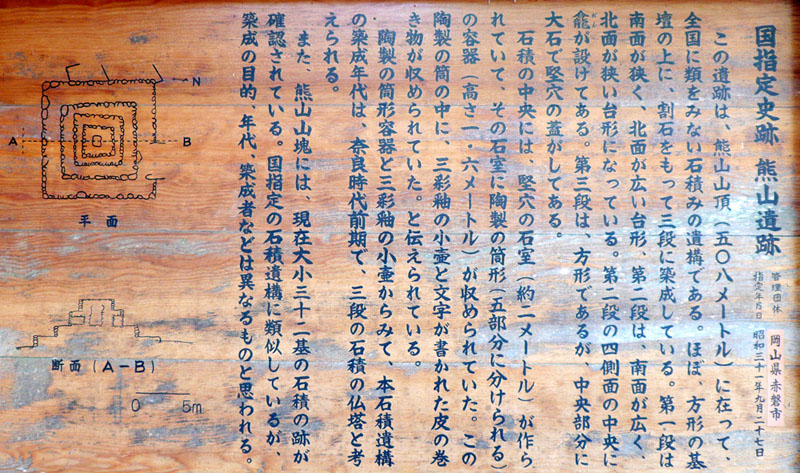 国指定史跡 熊山遺跡
管理団体 岡山県赤磐市
指定年月日 昭和三十一年九月二十七日
この遺跡は、熊山山頂(五〇八メートル)に在って、
全国に類をみない石積みの遺構である。ほぼ、方形の基
壇の上に、割石をもって三段に築成している。第一段は
南面が狭く、北面が広い台形、第二段は、南面が広く、
北面が狭い台形になっている。第二段の四側面の中央に
龕がん が設けてある。第三段は、方形であるが、中央部分に
大石で竪穴の蓋がしてある。
石積の中央には 竪穴の石室(約二メートル)が作ら
れていて、その石室に陶製の筒形(五部分に分けられる)
の容器(高さ一・六メートル)が収められていた。この
陶製の筒の中に、三彩釉の小壺と文字が書かれた皮の巻
き物が収められていた。と伝えられている。
陶製の筒形容器と三彩釉の小壺からみて、本石積遺構
の築成年代は、奈良時代前期で、三段の石積の仏塔と考
えられる。
また、熊山山塊には、現在大小三十二基の石積の跡が
確認されている。国指定の石積遺構に類似しているが、
築成の目的、年代、築成者などは異なるものと思われる。
N
A
B
平面
断面(A-B)
0 5m